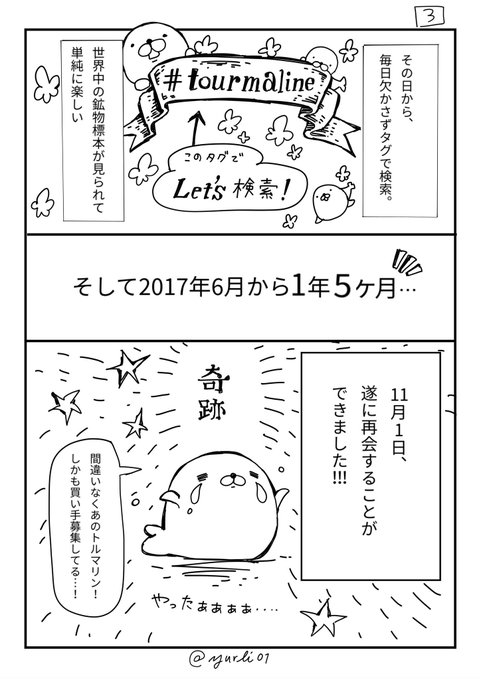 3
その日から、
毎日欠かさずタグで検索。
#tourmaline
このタグで
Let's 検索!
世界中の鉱物標本が見られて
単純に楽しい
そして2017年6月から1年5ヶ月…
11月1日、
遂に再会することが
できました!!!
奇跡
間違いなくあのトルマリン!
しかも買い手募集してる…!
やったぁぁぁぁ....
@yurli01